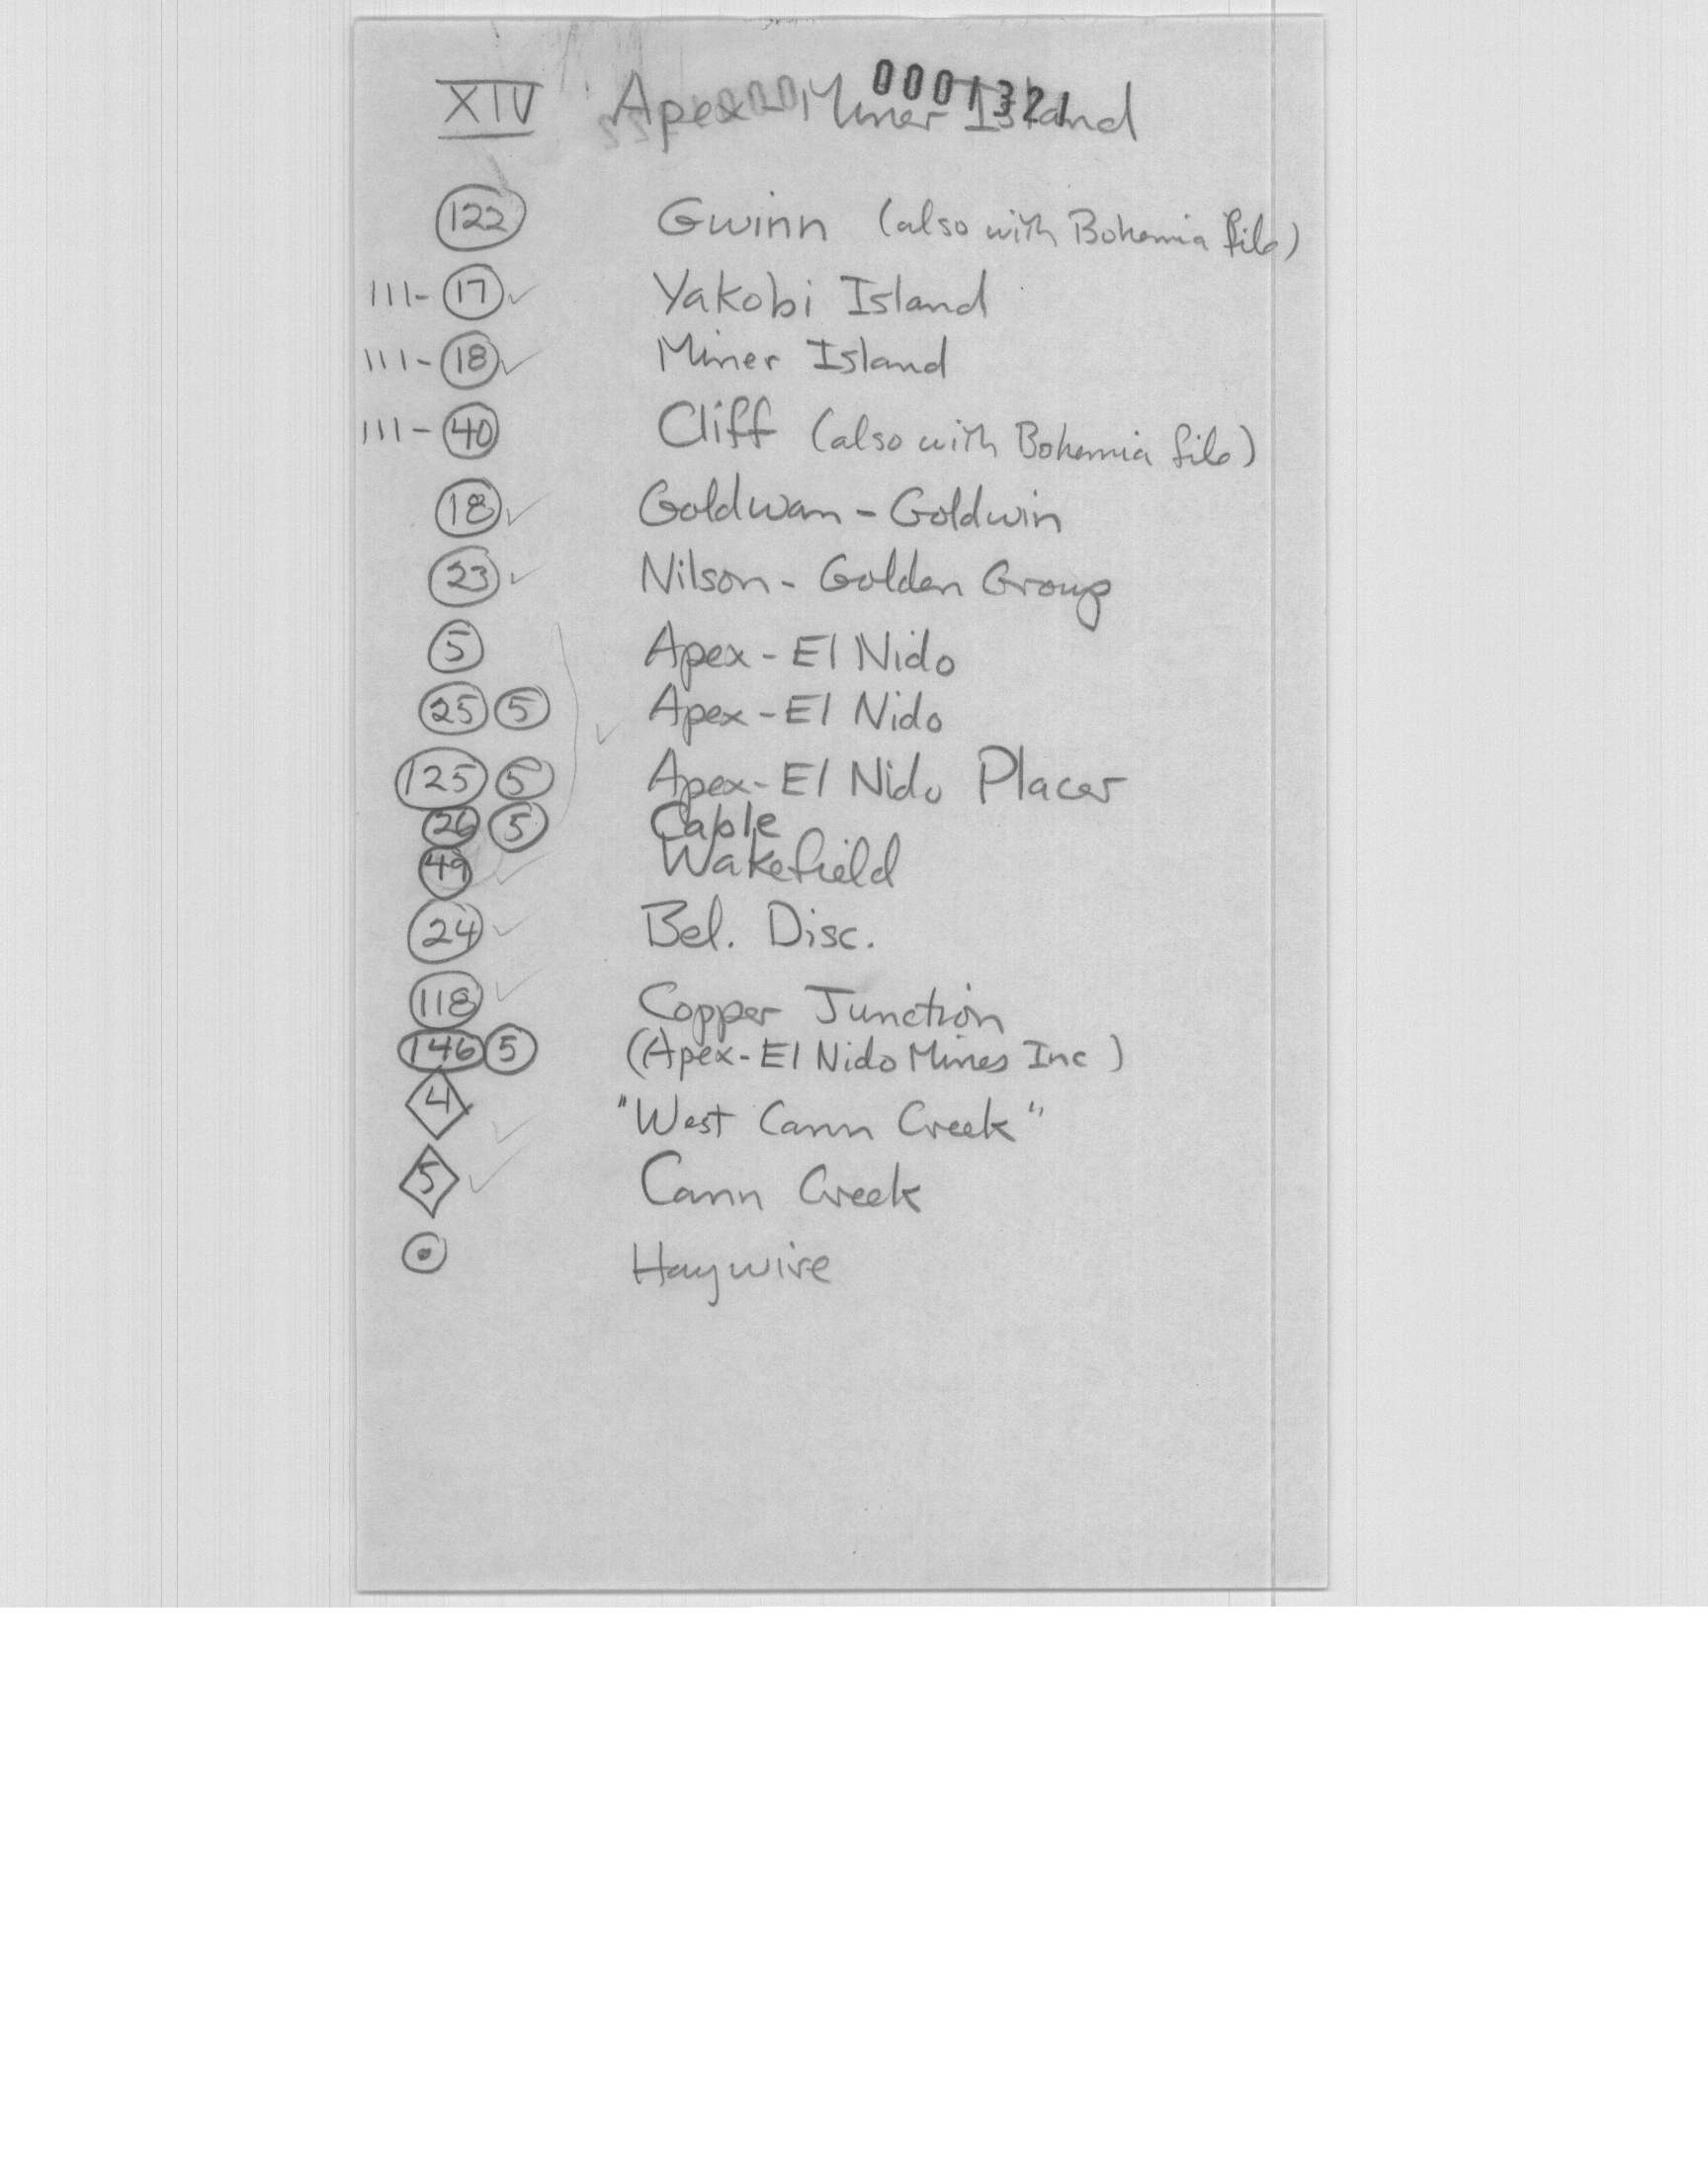 0001321
XIV Apex Miner Island
122 Gwinn (also with Bohemia file)
111-17 ✓ Yakobi Island
111-18 ✓ Miner Island
111-40 Cliff (also with Bohemia file)
18 ✓ Goldwan - Goldwin
23 ✓ Nilson - Golden Group
5 Apex - El Nido
25 5 Apex - El Nido
125 5 Apex - El Nido Placer
26 5 Cable
49 ✓ Wakefield
24 ✓ Bel. Disc.
118 ✓ Copper Junction
146 5 (Apex - El Nido Mines Inc)
4 ✓ "West Cann Creek"
5 ✓ Cann Creek
Haywire